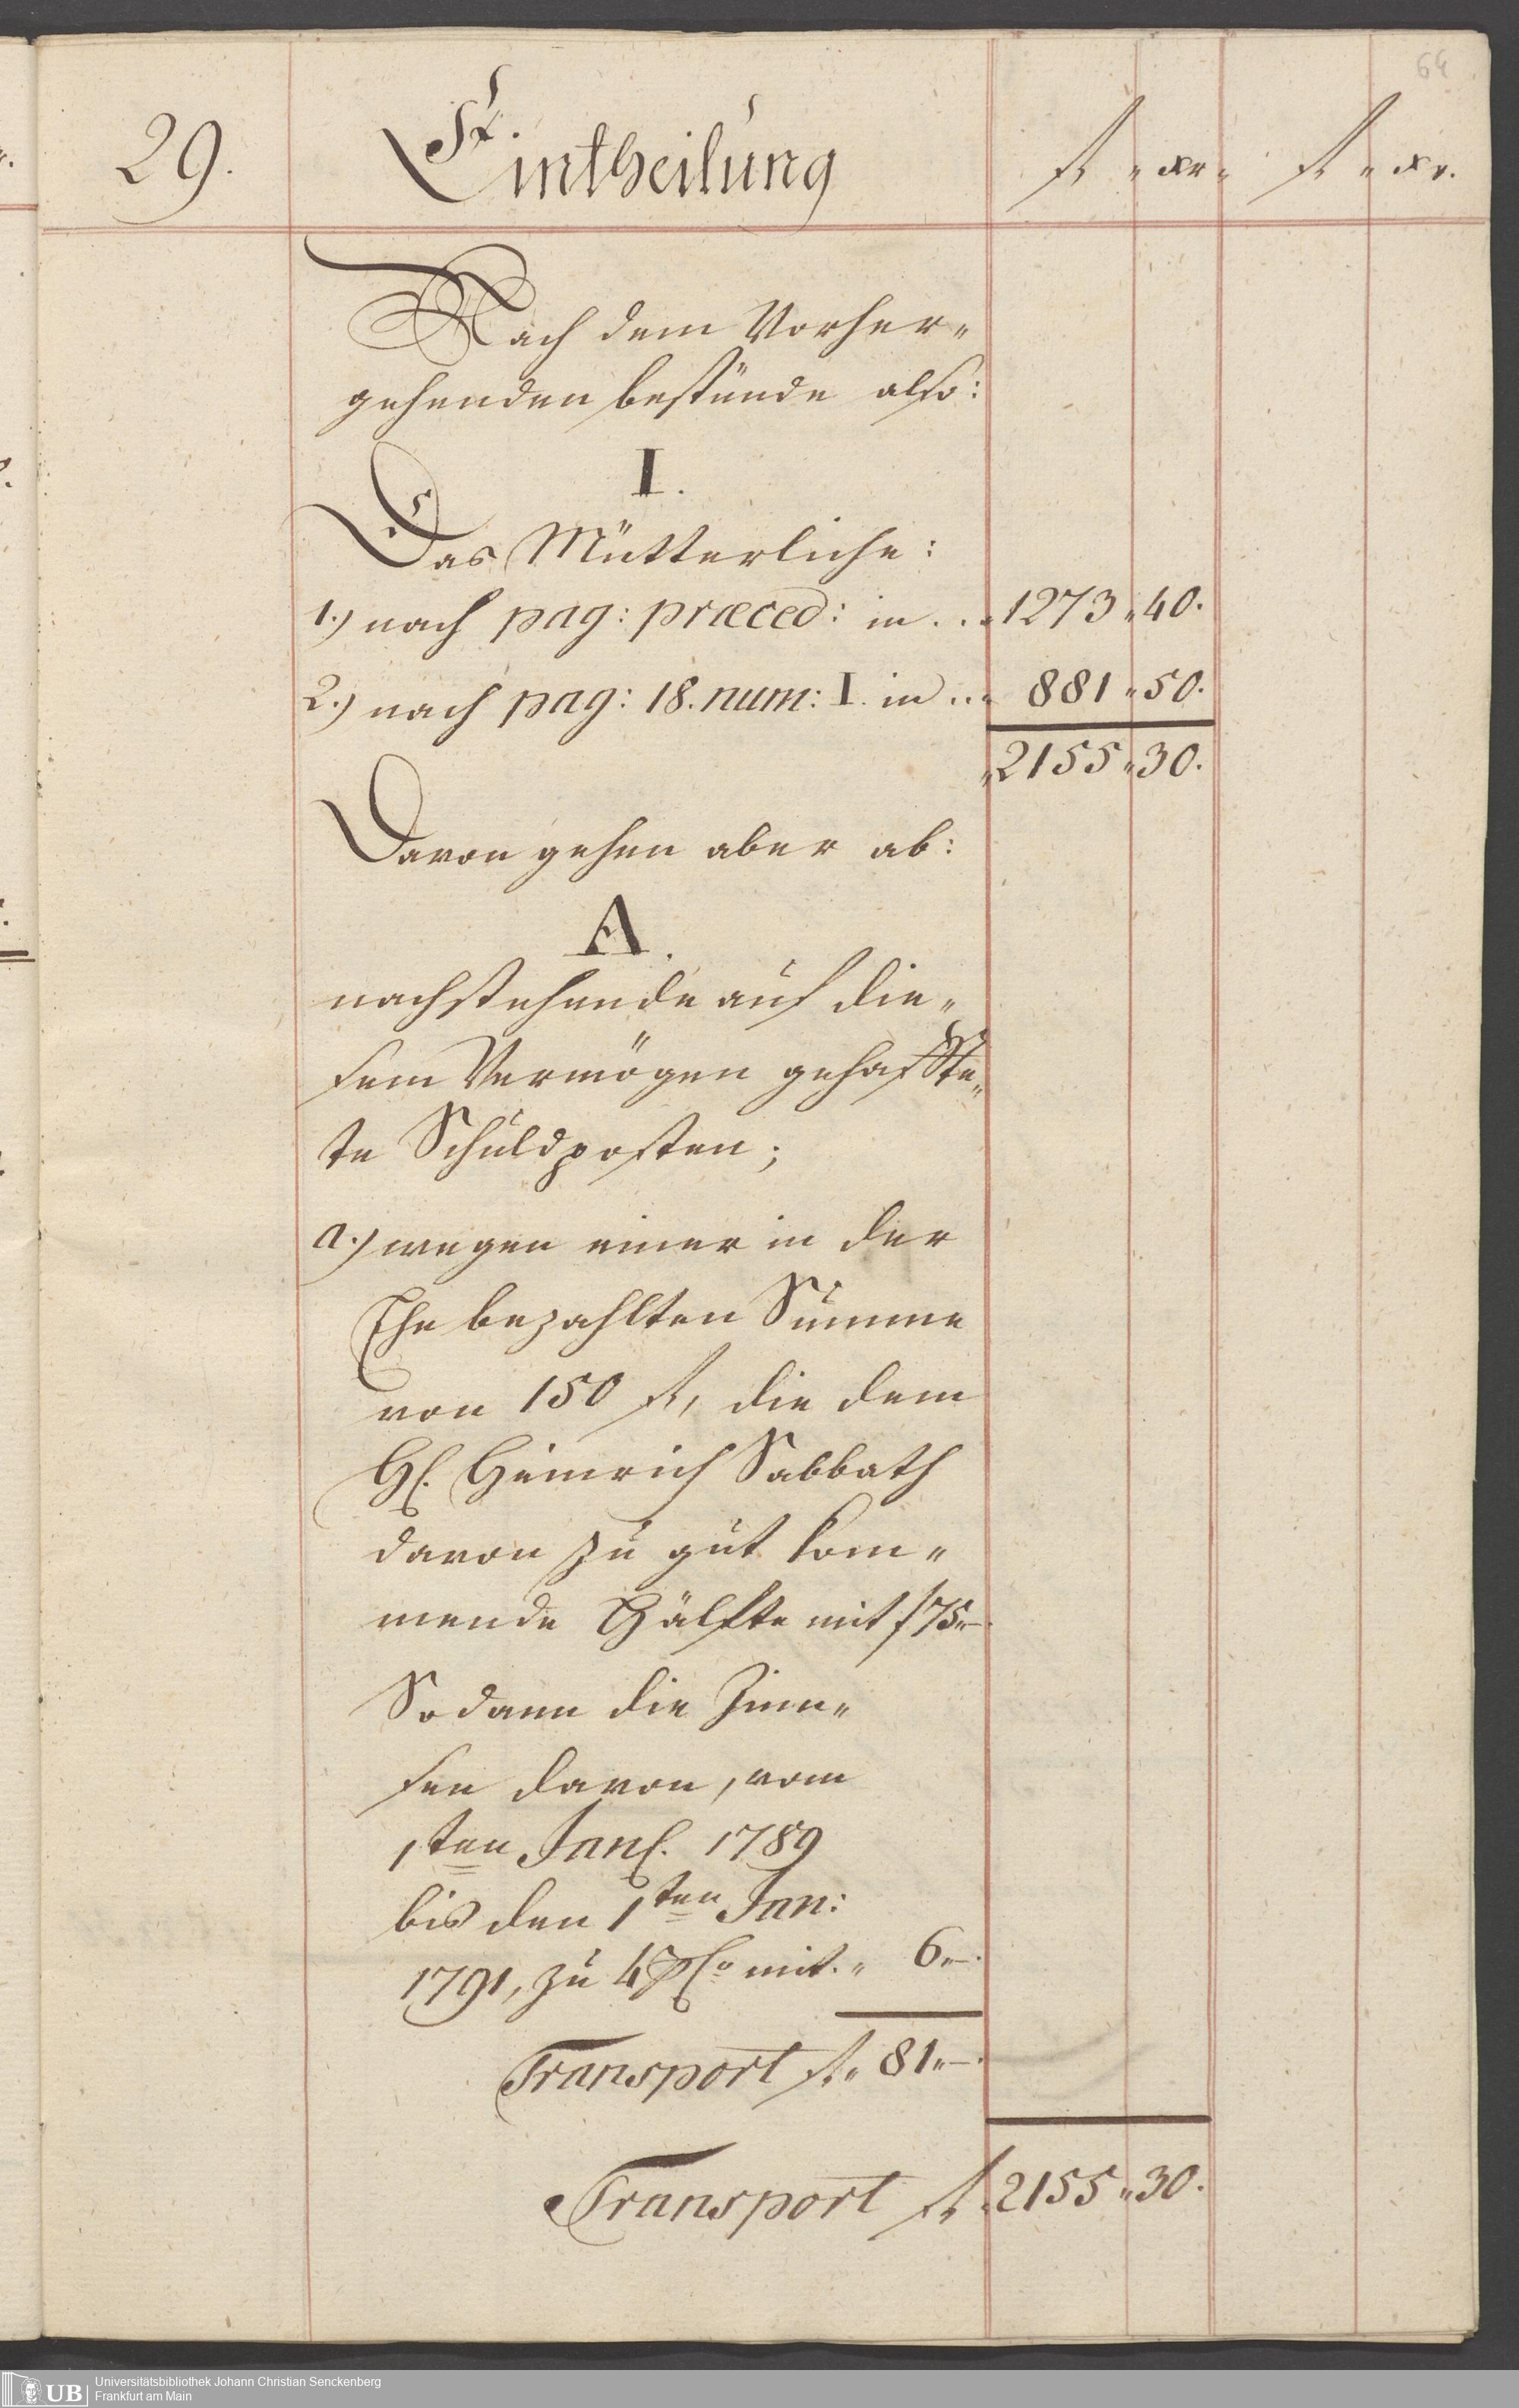 64
29. Eintheilung fl. " xr. " fl. " xr.
Nach dem Vorher"
gehenden bestünde also:
I.
Das Mütterliche:
1.) nach pag: præced: in . . " 1273 " 40.
2.) nach pag: 18. num: I. in . . " 881 " 50.
" 2155 " 30.
Davon gehen aber ab:
A.
nachstehende auf die"
sem Vermögen gehaffte"
te Schuldposten;
a.) wegen einer in der
Ehe bezahlten Summe
von 150 fl, die dem
H. Heinrich Sabbath
davon zu gut kom"
mende Hälfte mit f 75 " —.
Sodann die Zinn"
sen davon, vom
1ten Jan. 1789
bis den 1ten Jan:
1791, zu 4 p Co mit . " 6 " —.
Transport fl. " 81 " —.
Transport fl. " 2155 " 30.
UB Universitätsbibliothek Johann Christian Senckenberg
Frankfurt am Main